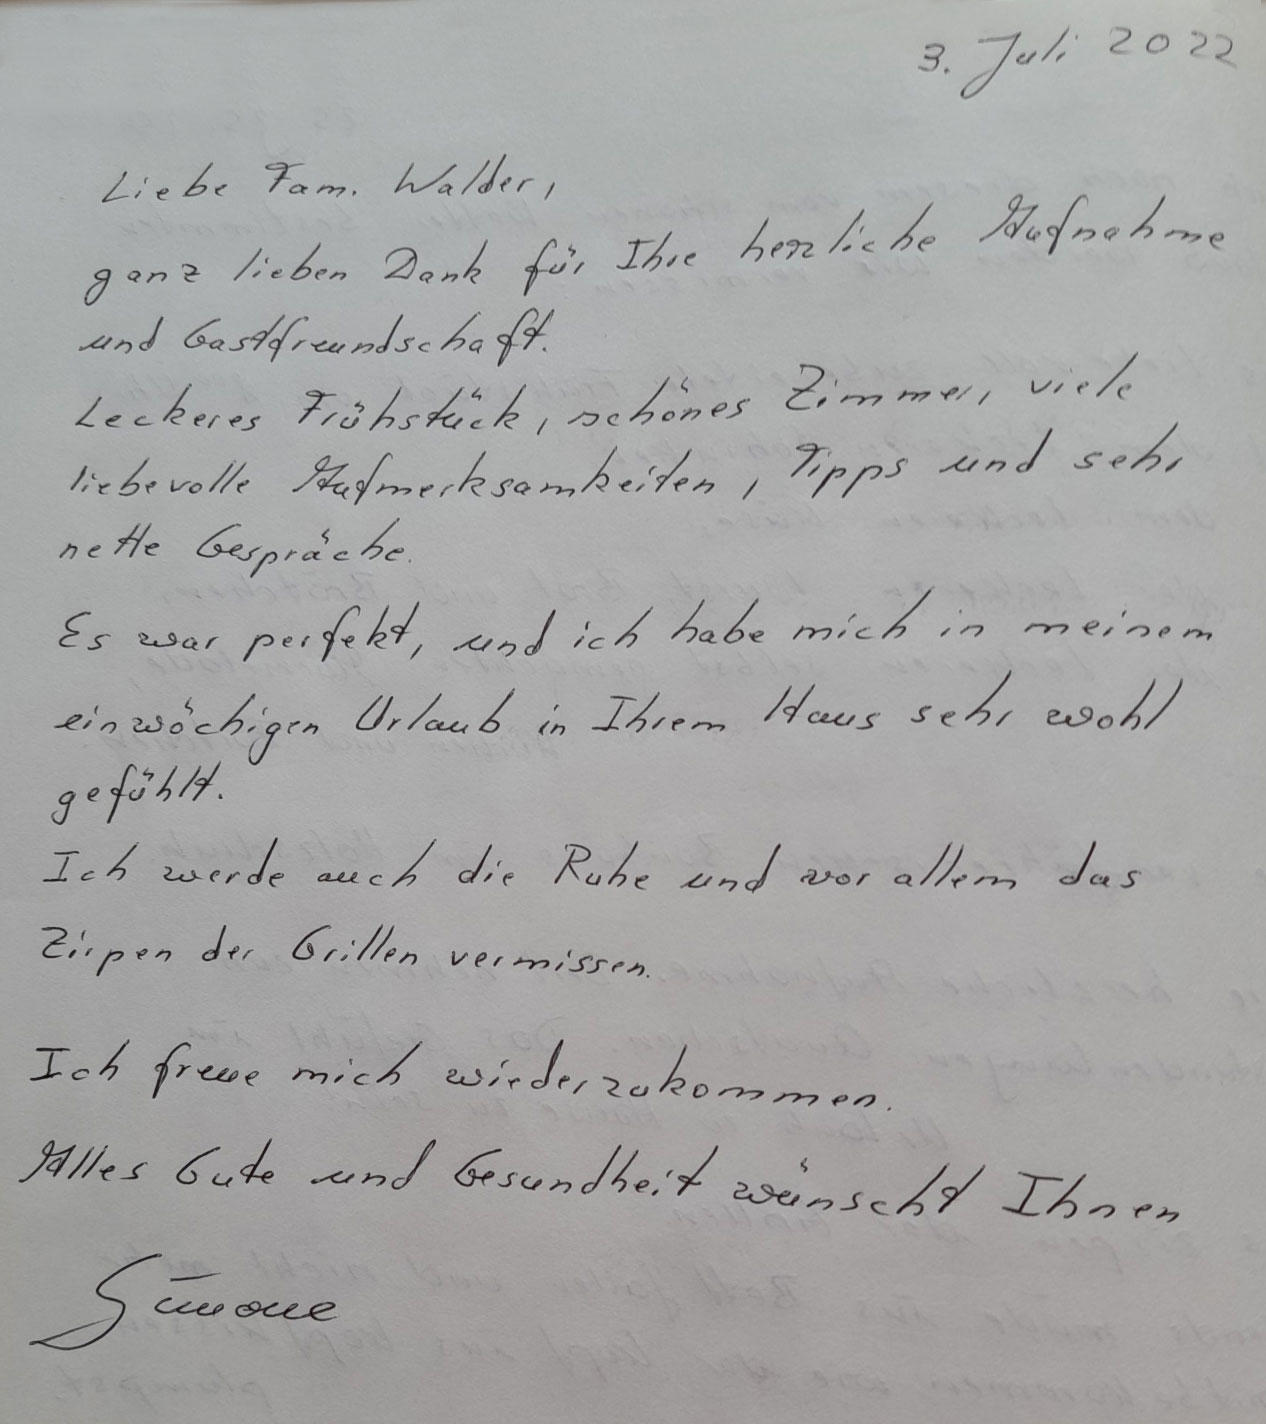 3. Juli 2022
Liebe Fam. Walder,
ganz lieben Dank für Ihre herzliche Aufnahme
und Gastfreundschaft.
Leckeres Frühstück, schönes Zimmer, viele
liebevolle Aufmerksamkeiten, Tipps und sehr
nette Gespräche.
Es war perfekt, und ich habe mich in meinem
einwöchigen Urlaub in Ihrem Haus sehr wohl
gefühlt.
Ich werde auch die Ruhe und vor allem das
Zirpen der Grillen vermissen.
Ich freue mich wiederzukommen.
Alles Gute und Gesundheit wünscht Ihnen
Simone